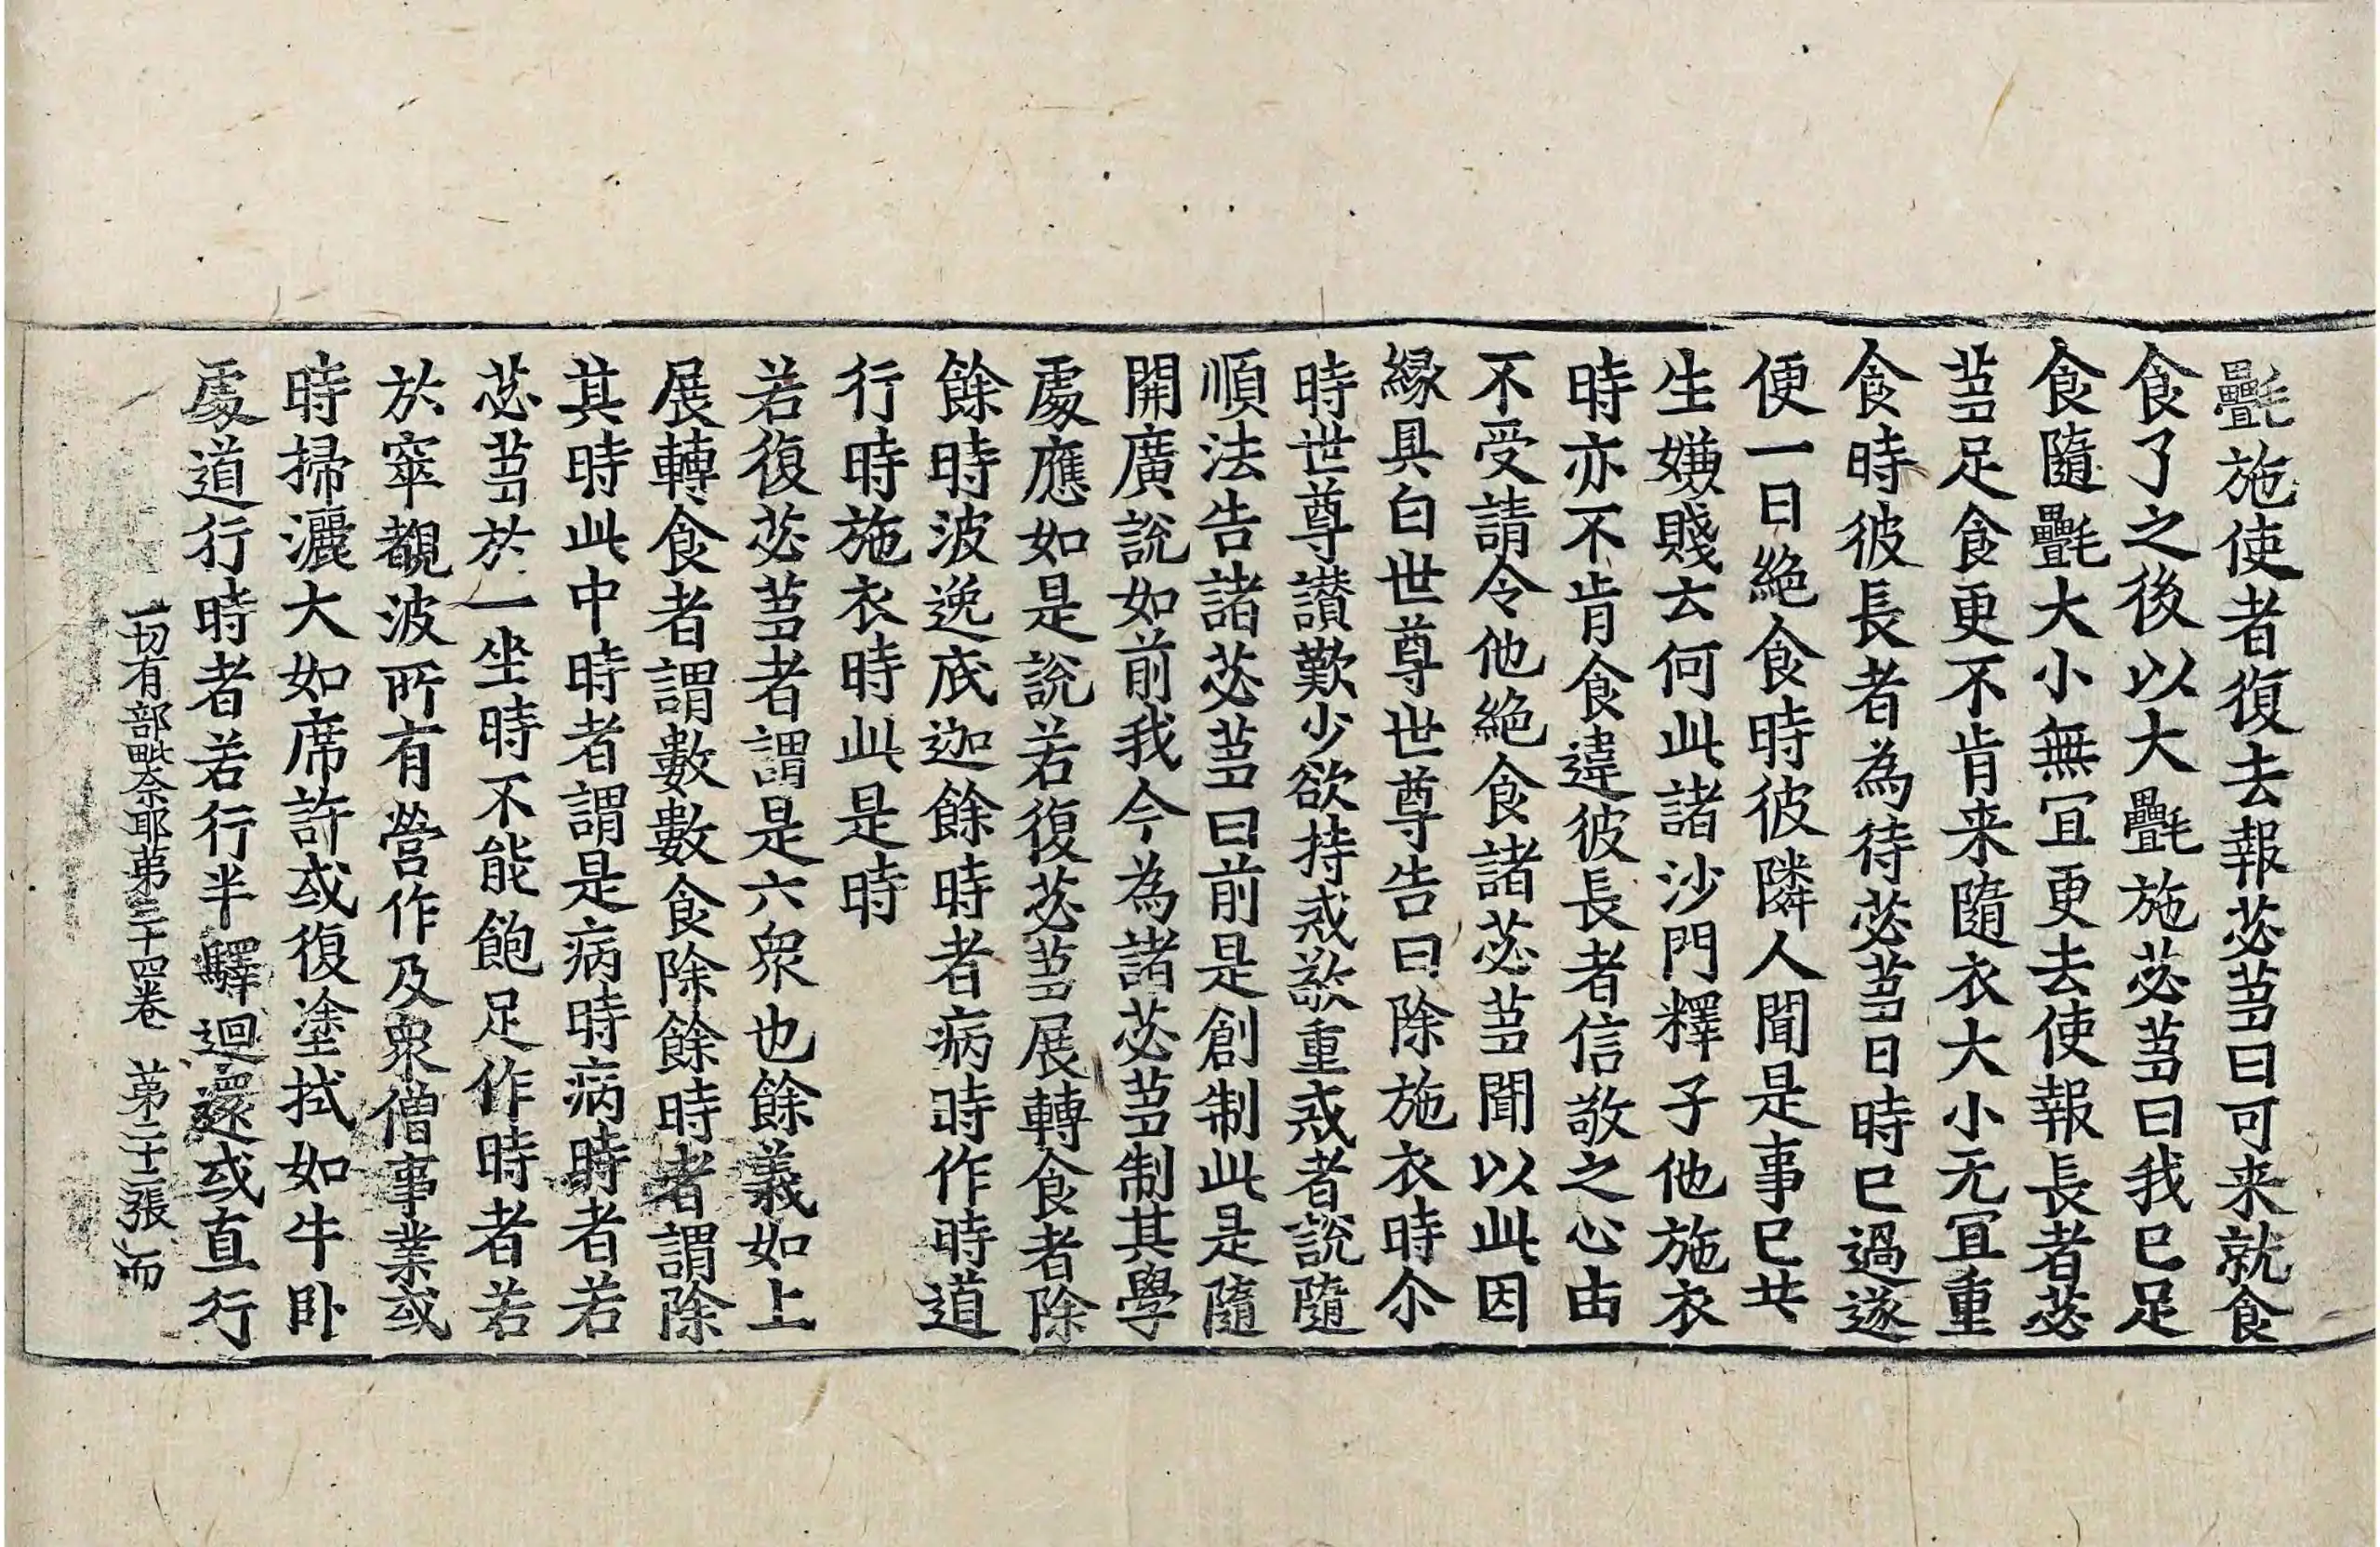 㲲施使者復去報苾芻曰可来就食
食了之後以大㲲施苾芻曰我已足
食隨㲲大小無冝更去使報長者苾
芻足食更不肯来隨衣大小无冝重
食時彼長者為待苾芻日時已過遂
便一日絶食時彼隣人聞是事已共
生嫌賤云何此諸沙門釋子他施衣
時亦不肯食違彼長者信敬之心由
不受請令他絶食諸苾芻聞以此因
緣具白世尊世尊告曰除施衣時尒
時世尊讃歎少欲持戒敬重戒者說隨
順法告諸苾芻曰前是創制此是隨
開廣說如前我今為諸苾芻制其學
處應如是說若復苾芻展轉食者除
餘時波逸底迦餘時者病時作時道
行時施衣時此是時
若復苾芻者謂是六衆也餘義如上
展轉食者謂數數食除餘時者謂除
其時此中時者謂是病時病時者若
苾芻於一坐時不能飽足作時者若
於窣覩波所有營作及衆僧事業或
時掃灑大如席許或復塗拭如牛卧
處道行時者若行半驛迴還或直行
一切有部毗奈耶苐三十四卷 苐二十二張 而